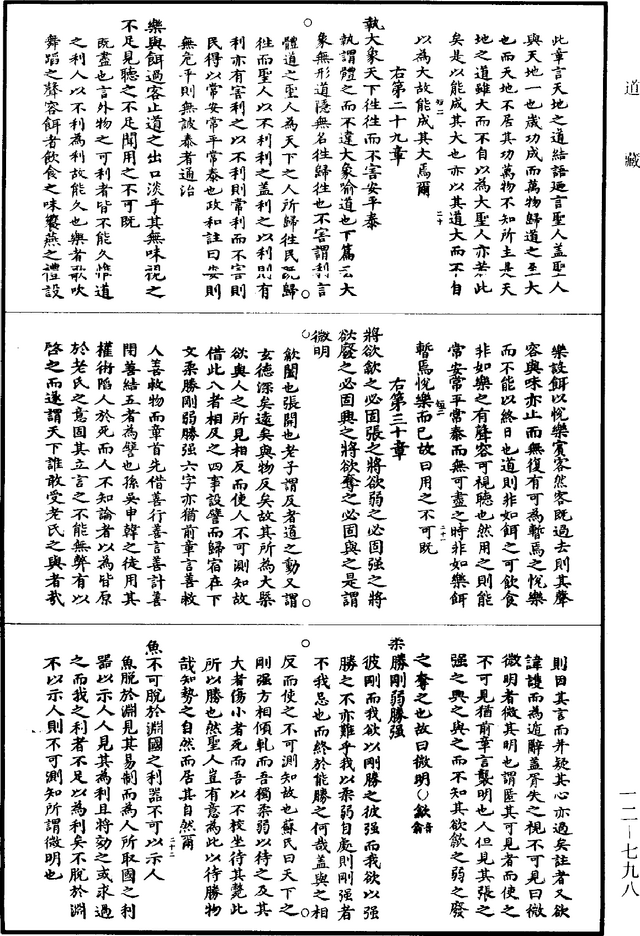 道藏
此章言天地之道結語遁言聖人蓋聖人
與天地一也歲功成而萬物歸道之至大
也而天地不居其功萬物不知所主是天
地之道雖大而不自以為大聖人亦若此
矣是以能成其大也亦以其道大而不自
以為大故能成其大焉爾
右第二十九章
執大象天下徃徃而不害安平泰
執謂體之而不違大象喻道也下篇云大
象無形道隱無名徃歸徃也不害謂利言
體道之聖人為天下之人所歸徃民既歸
徃而聖人以不利利之蓋利之以利則有
利亦有害利之以不利則常利而不害則
民得以常安常平常泰也政和註曰安則
無危平則無詖泰者通治
樂與餌過客止道之出口淡乎其無味視之
不足見聽之不足聞用之不可既
既盡也言外物之可利者皆不能久惟道
之利人以不利為利故能久也樂者歌吹
舞蹈之聲容餌者飲食之味饗燕之禮設
樂設餌以悅樂賓客然客既過去則其聲
容與味亦止而無復有可為暫焉之悅樂
而不能以終日也道則非如餌之可飲食
非如樂之有聲容可視聽也然用之則能
常安常平常泰而無可盡之時非如樂餌
暫焉悅樂而已故曰用之不可既
右第三十章
將欲歙之必固張之將欲弱之必固强之將
欲廢之必固興之將欲奪之必固與之是謂
微明
歙闔也張開也老子謂反者道之動又謂
玄德深矣遠矣與物反矣故其所為大槩
欲與人之所見相反而使人不可測知故
借此八者相反之四事設譬而歸宿在下
文柔勝剛弱勝强六字亦猶前章言善救
人善救物而章首先借善行善言善計善
閉善結五者為譬也孫吳申韓之徒用其
權術陷人於死而人不知論者以為皆原
於老氏之意固其立言之不能無弊有以
啓之而遂謂天下誰敢受老氏之與者哉
則因其言而并疑其心亦過矣註者又欲
諱護而為遁辭蓋胥失之視不可見曰微
微明者微其明也謂匿其可見者而使之
不可見猶前章言襲明也人但見其張之
强之興之與之而不知其欲歙之弱之廢
之奪之也故曰微明歙音翕
柔勝剛弱勝强
彼剛而我欲以剛勝之彼强而我欲以强
勝之不亦難乎我以柔弱自處則剛强者
不我忌也而終於能勝之何哉蓋與之相
反而使之不可測知故也蘇氏曰天下之
剛强方相傾軋而吾獨柔弱以待之及其
大者傷小者死而吾以不校坐待其斃此
所以勝也然聖人豈有意為此以待勝物
哉知勢之自然而居其自然爾
魚不可脫於淵國之利器不可以示人
魚脫於淵見其易制而為人所取國之利
器以示人人見其為利且將効之或求過
之而我之利者不足以為利矣不脫於淵
不以示人則不可測知所謂微明也
一二—七九八